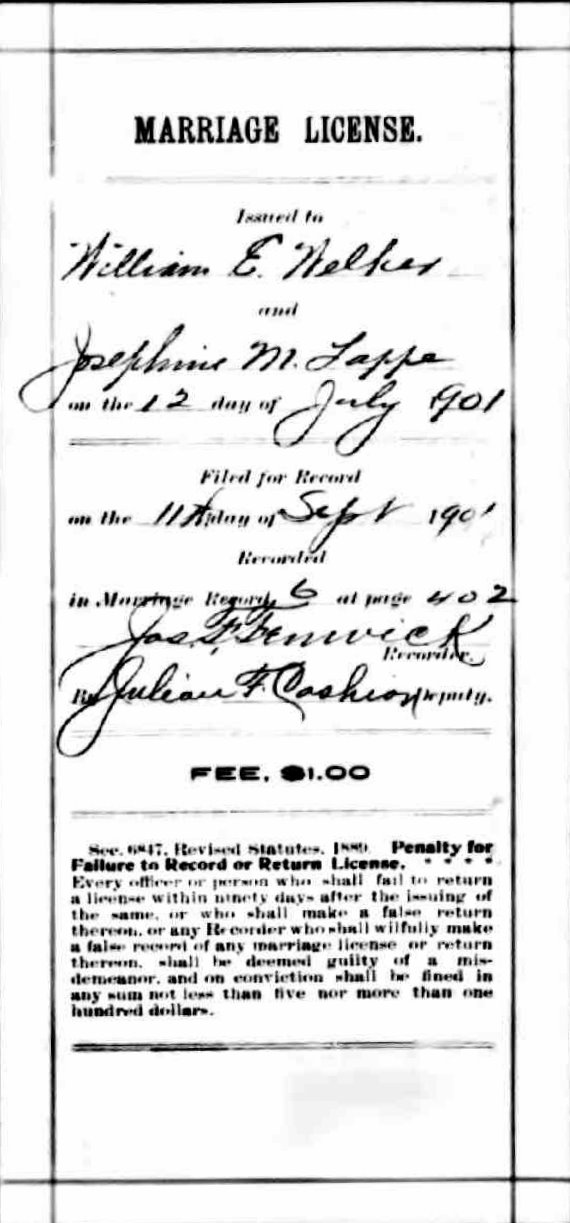 MARRIAGE LICENSE.
Issued to
William E. Welker
and
Josephine M. Lappe
on the 12 day of July 1901
Filed for Record
on the 11th day of Sept 1901
Recorded
in Marriage Record, 6 at page 402
Jas. F. Fenwick
Recorder.
By Julian F. Cashion Deputy.
FEE, $1.00
Sec. 6847, Revised Statutes, 1889. Penalty for
Failure to Record or Return License. * * * *
Every officer or person who shall fail to return
a license within ninety days after the issuing of
the same, or who shall make a false return
thereon, or any Recorder who shall wilfully make
a false record of any marriage license or return
thereon, shall be deemed guilty of a mis-
demeanor, and on conviction shall be fined in
any sum not less than five nor more than one
hundred dollars.